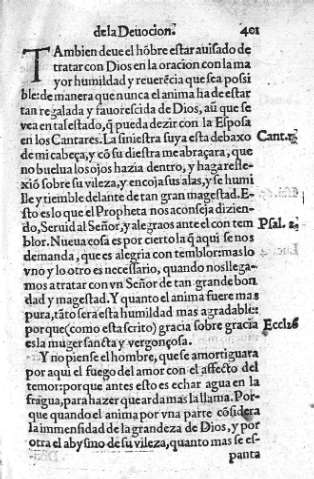 de la Deuocion. 401
TAmbien deue el hõbre estar auisado de
tratar con Dios en la oracion con la ma
yor humildad y reuerẽcia que sea possi
ble: de manera que nunca el anima ha de estar
tan regalada y fauorescida de Dios, aũ que se
vea en tal estado, q̃ pueda dezir con la Esposa
en los Cantares. La siniestra suya esta debaxo Cant.2.
de mi cabeça, y cõ su diestra me abraçara, que
no buelua los ojos hazia dentro, y haga refle-
xiõ sobre su vileza, y encoja sus alas, y se humi
lle y tiemble delante de tan gran magestad. E-
sto es lo que el Propheta nos aconseja dizien-
do, Seruid al Señor, y alegraos ante el con tem Psal. 2.
blor. Nueua cosa es por cierto la q̃ aqui se nos
demanda, que es alegria con temblor: mas lo
vno y lo otro es necessario, quando nos llega-
mos a tratar con vn Señor de tan grande bon
dad y magestad. Y quanto el anima fuere mas
pura, tãto sera esta humildad mas agradable:
porque (como esta scrito) gracia sobre gracia Eccl.26
es la muger sancta y vergonçosa.
Y no piense el hombre, que se amortiguara
por aqui el fuego del amor con el affecto del
temor: porque antes esto es echar agua en la
fragua, para hazer que arda mas la llama. Por-
que quando el anima por vna parte cõsidera
la immensidad de la grandeza de Dios, y por
otra el abysmo de su vileza, quanto mas se es-
panta